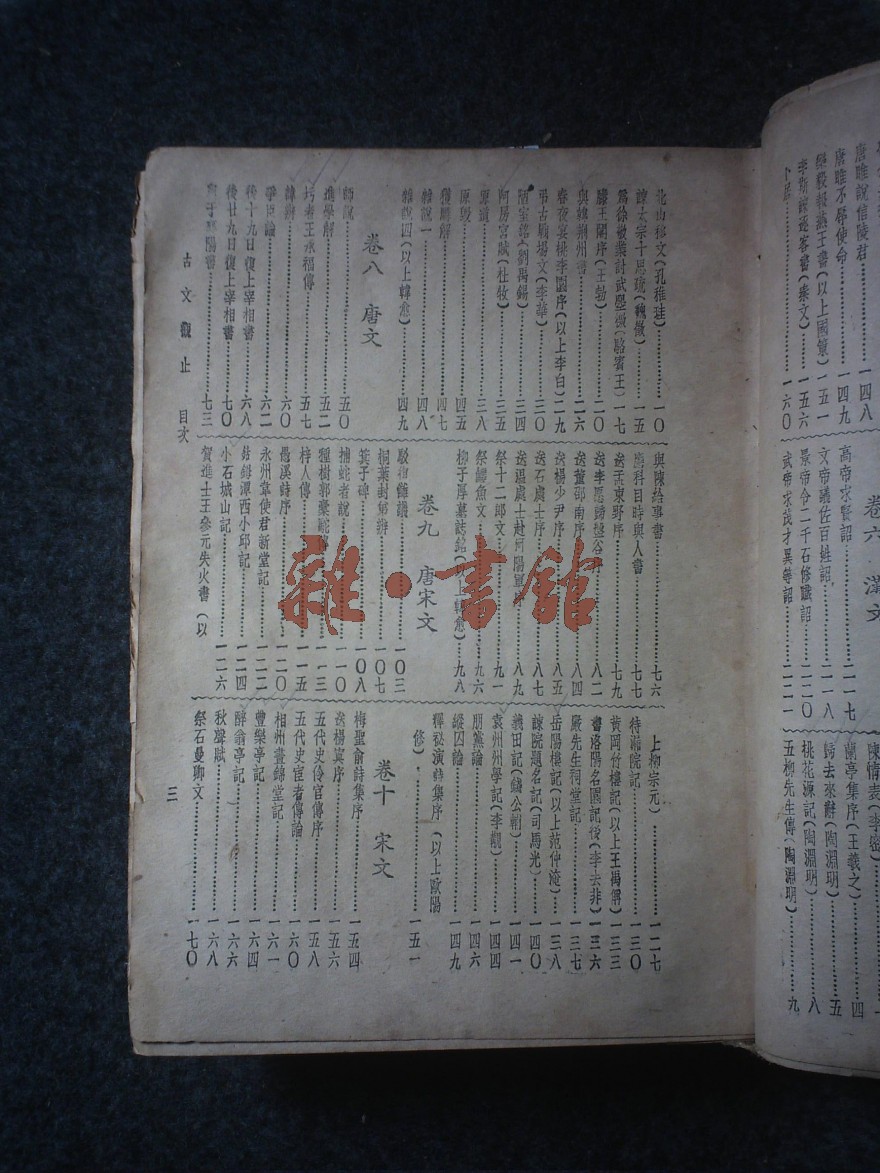 唐雎說信陵君……一四八
唐雎不辱使命……一四九
樂毅報燕王書(以上國策)……一五一
李斯諫逐客書(秦文)……一五六
卜居……一六〇
卷六 漢文
高帝求賢詔……一一七
文帝議佐百姓詔……一一八
景帝令二千石修職詔……一二〇
武帝求茂才異等詔……一二一
陳情表(李密)
蘭亭集序(王羲之)……四
歸去來辭(陶淵明)……五
桃花源記(陶淵明)……八
五柳先生傳(陶淵明)……九
北山移文(孔稚珪)……一〇
諫太宗十思疏(魏徵)……一五
爲徐敬業討武曌檄(駱賓王)……一七
滕王閣序(王勃)……二〇
與韓荊州書……二六
春夜宴桃李園序(以上李白)……二九
弔古戰場文(李華)……三〇
陋室銘(劉禹錫)……三四
阿房宮賦(杜牧)……三五
原道……三八
原毀……四五
獲麟解……四七
雜說一……四八
雜說四(以上韓愈)……四九
卷八 唐文
師說……五〇
進學解……五二
圬者王承福傳……五七
諱辯……六〇
爭臣論……六二
後十九日復上宰相書……六八
後廿九日復上宰相書……七〇
與于襄陽書……七三
與陳給事書……七六
應科目時與人書……七七
送孟東野序……七九
送李愿歸盤谷……八二
送董邵南序……八四
送楊少尹序……八五
送石處士序……八七
送溫處士赴河陽軍序……八九
祭十二郎文……九一
祭鱷魚文……九六
柳子厚墓誌銘(以上韓愈)……九八
卷九 唐宋文
駁復讎議……一〇三
桐葉封弟辯……一〇七
箕子碑……一〇八
捕蛇者說……一一〇
種樹郭橐駝……一一三
梓人傳……一一五
愚溪詩序……一二〇
永州韋使君新堂記……一二二
鈷鉧潭西小邱記……一二四
小石城山記……一二六
賀進士王參元失火書(以
上柳宗元)……一二七
待漏院記……一三〇
黃岡竹樓記(以上王禹偁)……一三三
書洛陽名園記後(李去非)……一三六
嚴先生祠堂記……一三七
岳陽樓記(以上范仲淹)……一三八
諫院題名記(司馬光)……一四〇
義田記(錢公輔)……一四一
袁州州學記(李覯)……一四四
朋黨論……一四六
縱囚論……一四九
釋祕演詩集序(以上歐陽
修)……一五一
卷十 宋文
梅聖俞詩集序……一五四
送楊寘序……一五六
五代史伶官傳序……一五八
五代史宦者傳論……一六〇
相州晝錦堂記……一六一
豐樂亭記……一六四
醉翁亭記……一六六
秋聲賦……一六八
祭石曼卿文……一七〇
古文觀止 目次 三
雜·書館